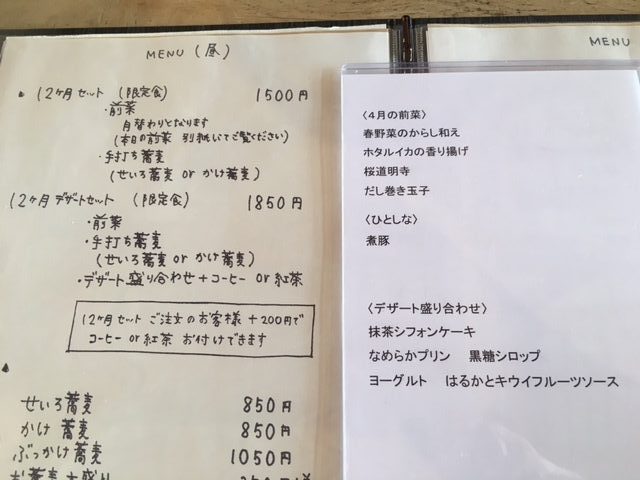 MENU (昼)
12ヶ月セット (限定食) 1500円
・前菜
月替わりとなります
(本日の前菜 別紙にてご覧ください)
・手打ち蕎麦
(せいろ蕎麦 or かけ蕎麦)
12ヶ月 デザートセット (限定食) 1850円
・前菜
・手打ち蕎麦
(せいろ蕎麦 or かけ蕎麦)
・デザート盛り合わせ+コーヒー or 紅茶
12ヶ月セット ご注文のお客様 +200円で
コーヒー or 紅茶 お付けできます
せいろ蕎麦 850円
かけ 蕎麦 850円
ぶっかけ蕎麦 1050円
MENU
〈4月の前菜〉
春野菜のからし和え
ホタルイカの香り揚げ
桜道明寺
だし巻き玉子
〈ひとしな〉
煮豚
〈デザート盛り合わせ〉
抹茶シフォンケーキ
なめらかプリン 黒糖シロップ
ヨーグルト はるかとキウイフルーツソース